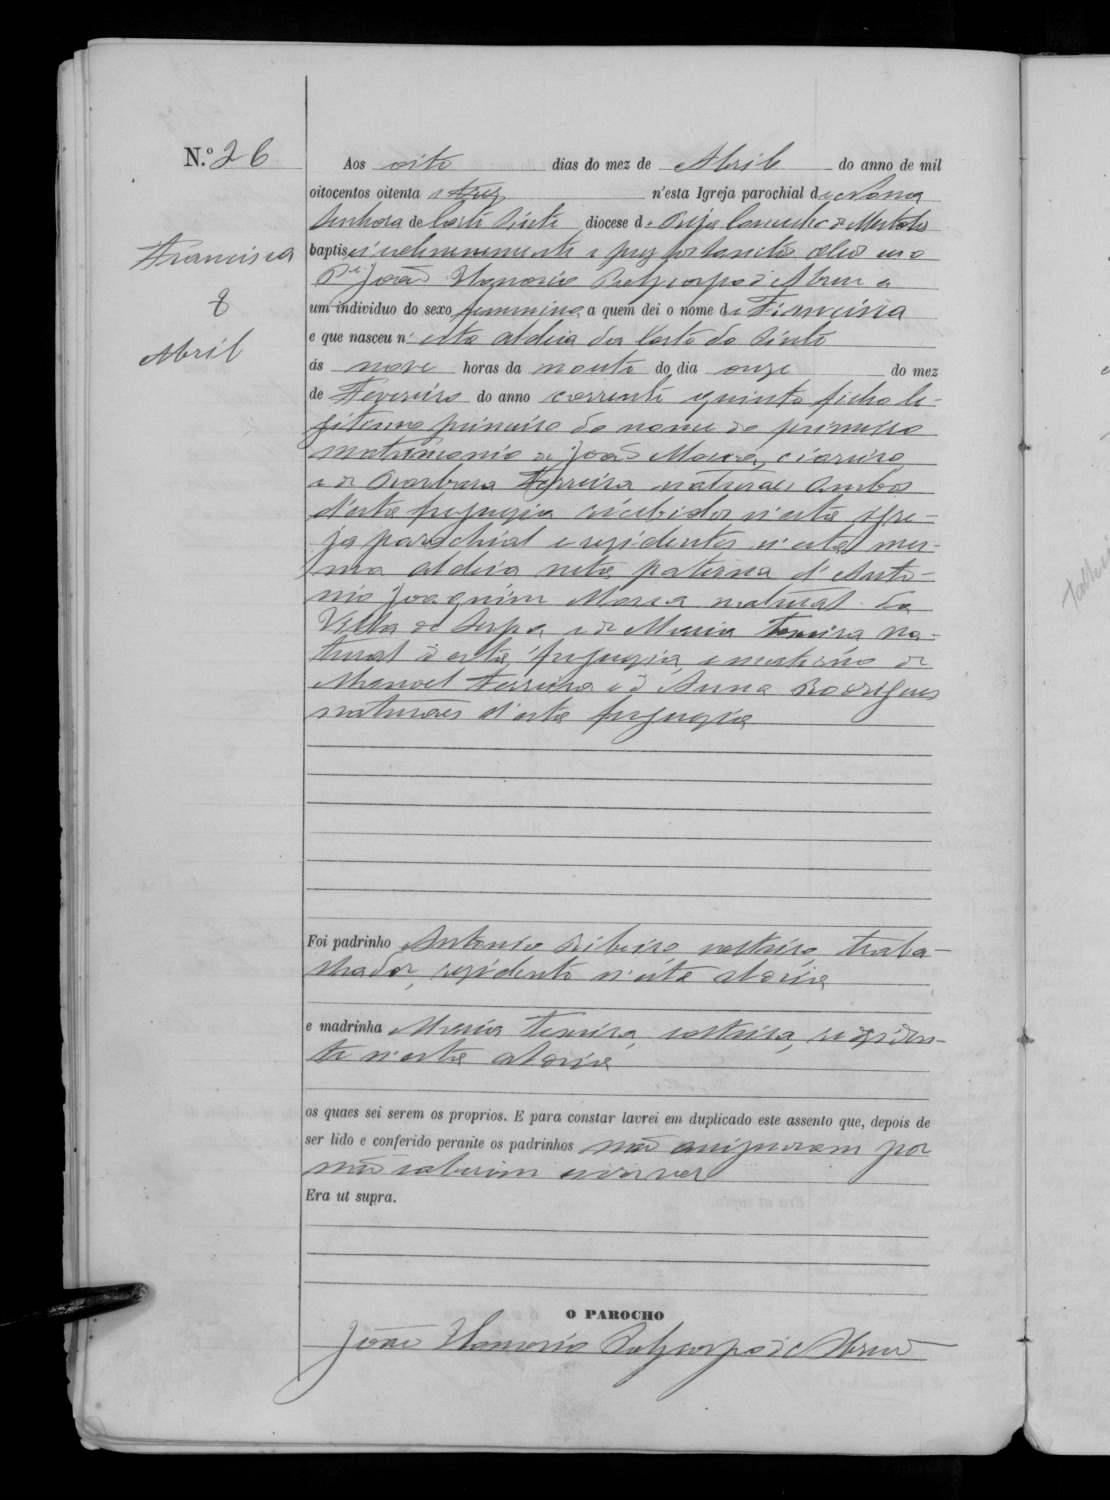 N.º 26
Francisca
8
Abril
Aos oito dias do mez de Abril do anno de mil
oitocentos oitenta e tres n'esta Igreja parochial de Nossa
Senhora de Corte Pinto diocese de Beja Concelho de Mertola
baptisei solemnemente e puz os Santos oleos eu o
Pe João Honorio Polycarpo d'Abreu a
um individuo do sexo feminino a quem dei o nome de Francisca
e que nasceu n'esta aldeia da Corte do Pinto
ás nove horas da noute do dia onze do mez
de Fevereiro do anno corrente quinta filha le-
gitima primeira do nome do primeiro
matrimonio de João Maria,
e de Barbara Ferreira naturaes ambos
d'esta freguezia recebidos n'esta igre-
ja parochial e rezidentes n'esta mes-
ma aldeia neta paterna d'Anto-
nio Joaquim Maria natural da
Villa de Serpa e de Maria Teixeira na-
tural d'esta freguezia e materna de
Manoel Ferreira e d'Anna Rodrigues
naturaes d'esta freguezia
Foi padrinho Antonio Ribeiro solteiro traba-
lhador, rezidente n'esta aldeia
e madrinha Maria Teixeira, solteira, reziden-
te n'esta aldeia
os quaes sei serem os proprios. E para constar lavrei em duplicado este assento que, depois de
ser lido e conferido perante os padrinhos não assignaram por
não saberem escrever
Era ut supra.
O PAROCHO
João Honorio Polycarpo d'Abreu